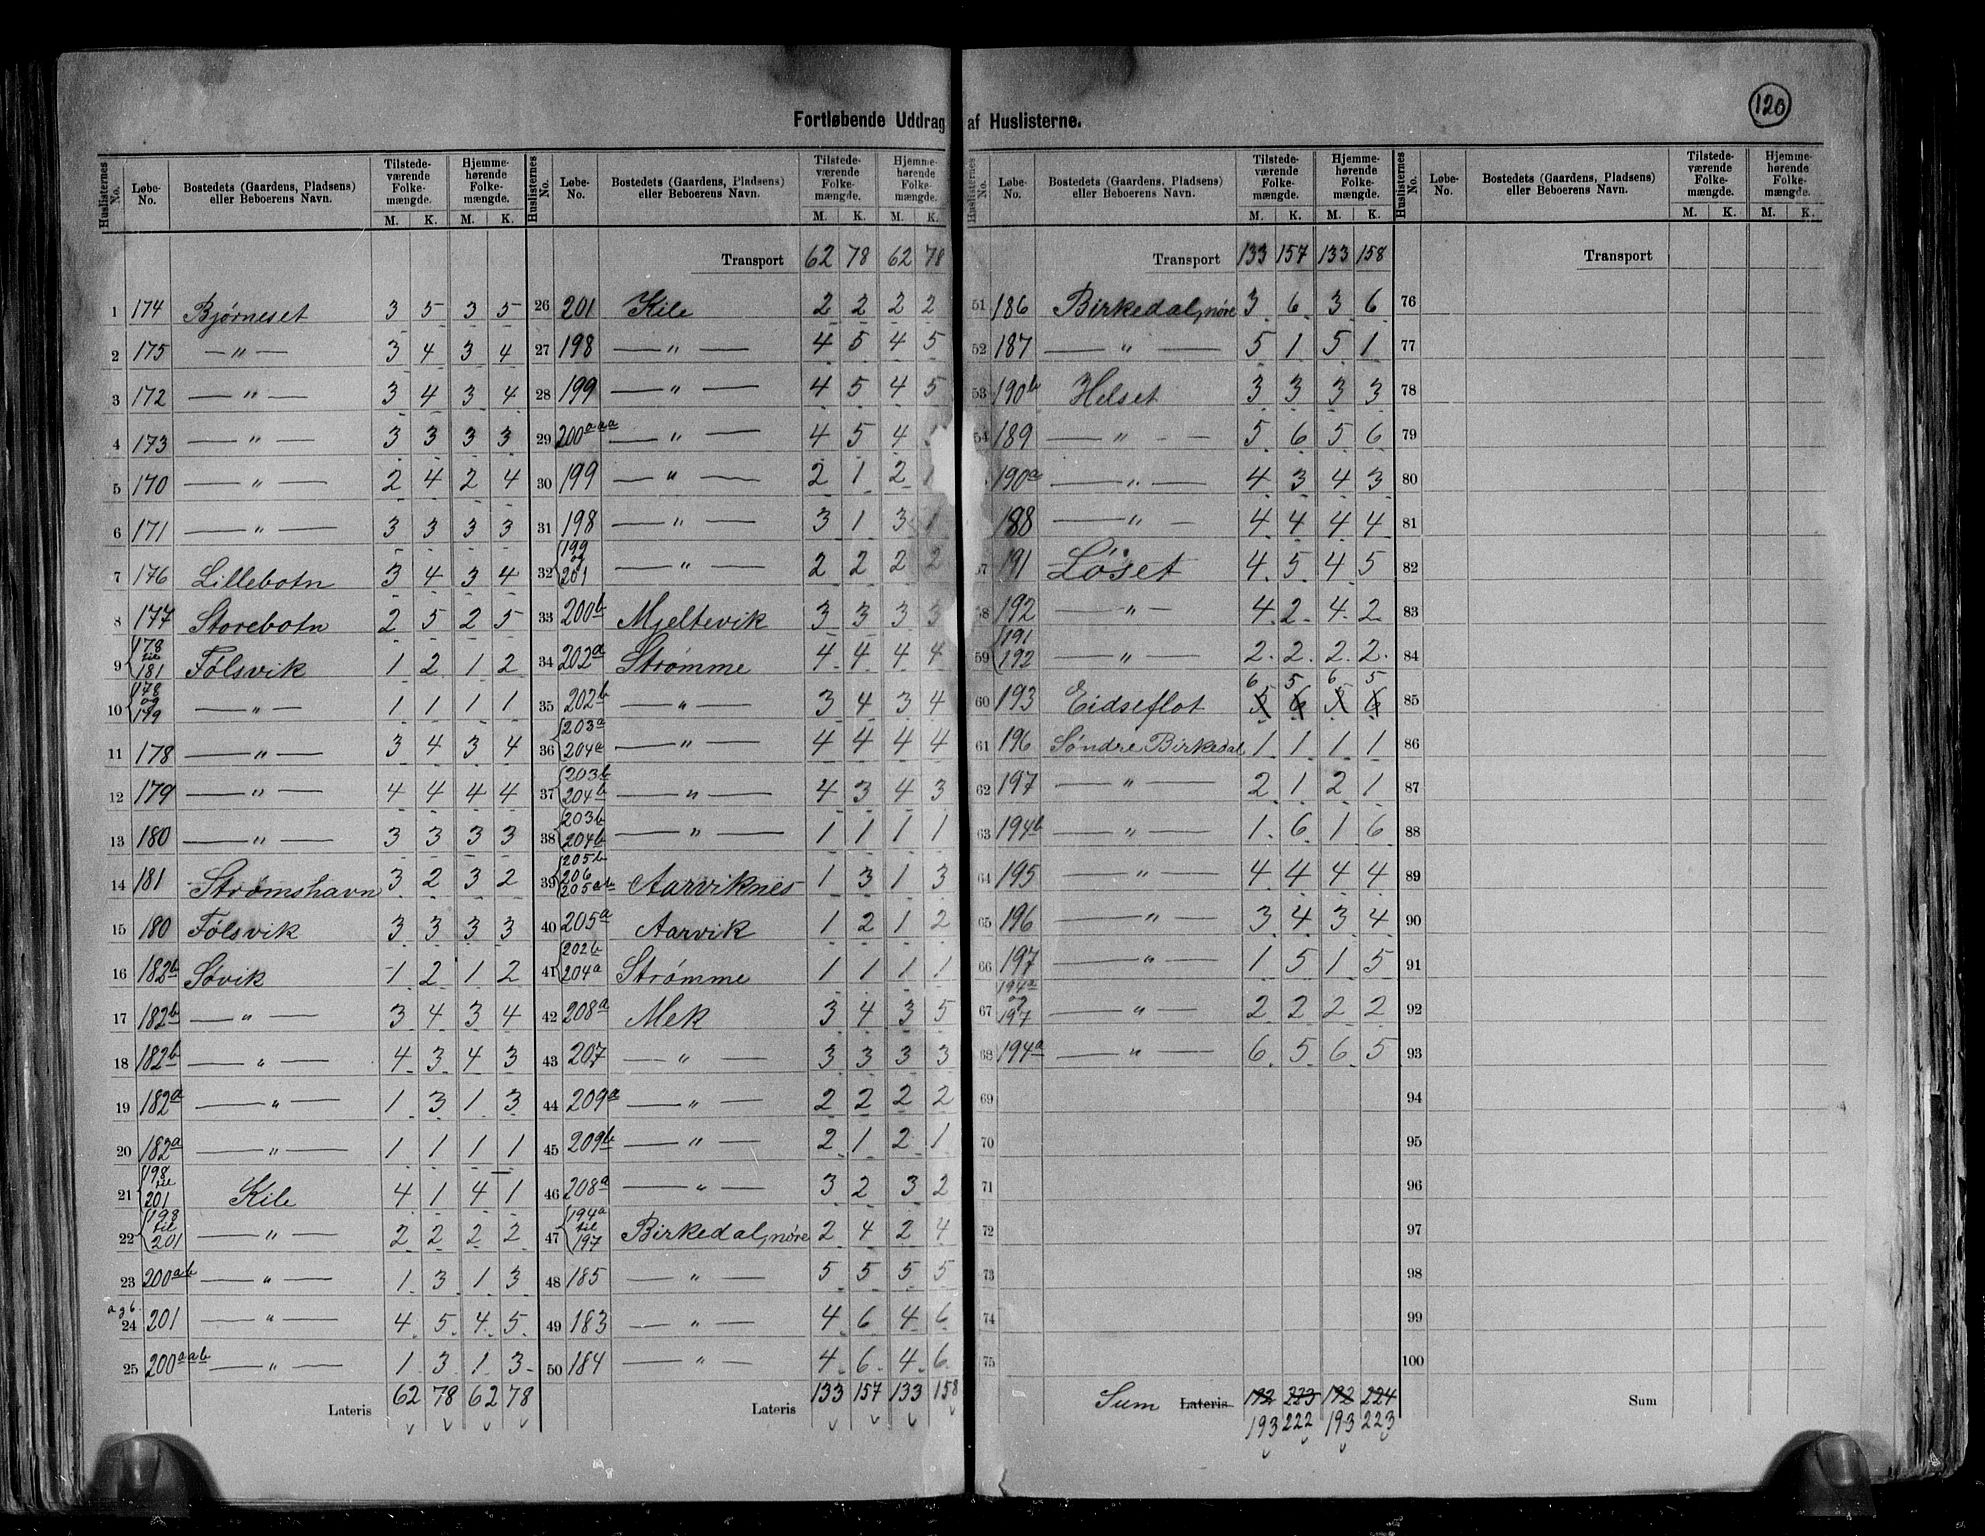 120
Fortløbende Uddrag af Huslisterne.
Huslisternes No. Løbe-No. Bostedets (Gaardens, Pladsens) eller Beboerens Navn. Tilstedeværende Folkemængde. Hjemmehørende Folkemængde.
M. K. M. K.
1 174 Bjørneset 3 5 3 5
2 175 — „ — 3 4 3 4
3 172 — „ — 3 4 3 4
4 173 — „ — 3 3 3 3
5 170 — „ — 2 4 2 4
6 171 — „ — 3 3 3 3
7 176 Lillebotn 3 4 3 4
8 177 Storebotn 2 5 2 5
9 178 til 181 Følsvik 1 2 1 2
10 178 og 179 — „ — 1 1 1 1
11 178 — „ — 3 4 3 4
12 179 — „ — 4 4 4 4
13 180 — „ — 3 3 3 3
14 181 Strømshavn 3 2 3 2
15 180 Følsvik 3 3 3 3
16 182b Søvik 1 2 1 2
17 182b — „ — 3 4 3 4
18 182b — „ — 4 3 4 3
19 182a — „ — 1 3 1 3
20 182a — „ — 1 1 1 1
21 198 til 201 Kile 4 1 4 1
22 198 til 201 — „ — 2 2 2 2
23 200ab — „ — 1 3 1 3
24 201 — „ — 4 5 4 5
25 200aab — „ — 1 3 1 3
Lateris 62 78 62 78
Huslisternes No. Løbe-No. Bostedets (Gaardens, Pladsens) eller Beboerens Navn. Tilstedeværende Folkemængde. Hjemmehørende Folkemængde.
M. K. M. K.
Transport 62 78 62 78
26 201 Kile 2 2 2 2
27 198 — „ — 4 5 4 5
28 199 — „ — 4 5 4 5
29 200aaa — „ — 4 5 4
30 199 — „ — 2 1 2 1
31 198 — „ — 3 1 3 1
32 199 og 201 — „ — 2 2 2 2
33 200b Mjeltevik 3 3 3 3
34 202a Strømme 4 4 4 4
35 202b — „ — 3 4 3 4
36 203a 204a — „ — 4 4 4 4
37 203b 204b — „ — 4 3 4 3
38 203b 204b — „ — 1 1 1 1
39 205b 206 205ab Aarviknes 1 3 1 3
40 205a Aarvik 1 2 1 2
41 202b 204a Strømme 1 1 1 1
42 208a Mek 3 4 3 5
43 207 — „ — 3 3 3 3
44 209a — „ — 2 2 2 2
45 209b — „ — 2 1 2 1
46 208a — „ — 3 2 3 2
47 194a til 197 Birkedal, nøre 2 4 2 4
48 185 — „ — 5 5 5 5
49 183 — „ — 4 6 4 6
50 184 — „ — 4 6 4 6
Lateris 133 157 133 158
Huslisternes No. Løbe-No. Bostedets (Gaardens, Pladsens) eller Beboerens Navn. Tilstedeværende Folkemængde. Hjemmehørende Folkemængde.
M. K. M. K.
Transport 133 157 133 158
51 186 Birkedal, nøre 3 6 3 6
52 187 — „ — 5 1 5 1
53 190b Helset 3 3 3 3
54 189 — „ — 5 6 5 6
190a — „ — 4 3 4 3
188 — „ — 4 4 4 4
57 191 Løset 4 5 4 5
58 192 — „ — 4 2 4 2
59 191 192 — „ — 2 2 2 2
6 5 6 5
60 193 Eidseflot 5 6 5 6
61 196 Søndre Birkedal 1 1 1 1
62 197 — „ — 2 1 2 1
63 194b — „ — 1 6 1 6
64 195 — „ — 4 4 4 4
65 196 — „ — 3 4 3 4
66 197 — „ — 1 5 1 5
67 194a og 197 — „ — 2 2 2 2
68 194a — „ — 6 5 6 5
69
70
71
72
73
74
75
Sum Lateris 192 223 192 224
193 222 193 223
Huslisternes No. Løbe-No. Bostedets (Gaardens, Pladsens) eller Beboerens Navn. Tilstedeværende Folkemængde. Hjemmehørende Folkemængde.
M. K. M. K.
Transport
76
77
78
79
80
81
82
83
84
85
86
87
88
89
90
91
92
93
94
95
96
97
98
99
100
Sum